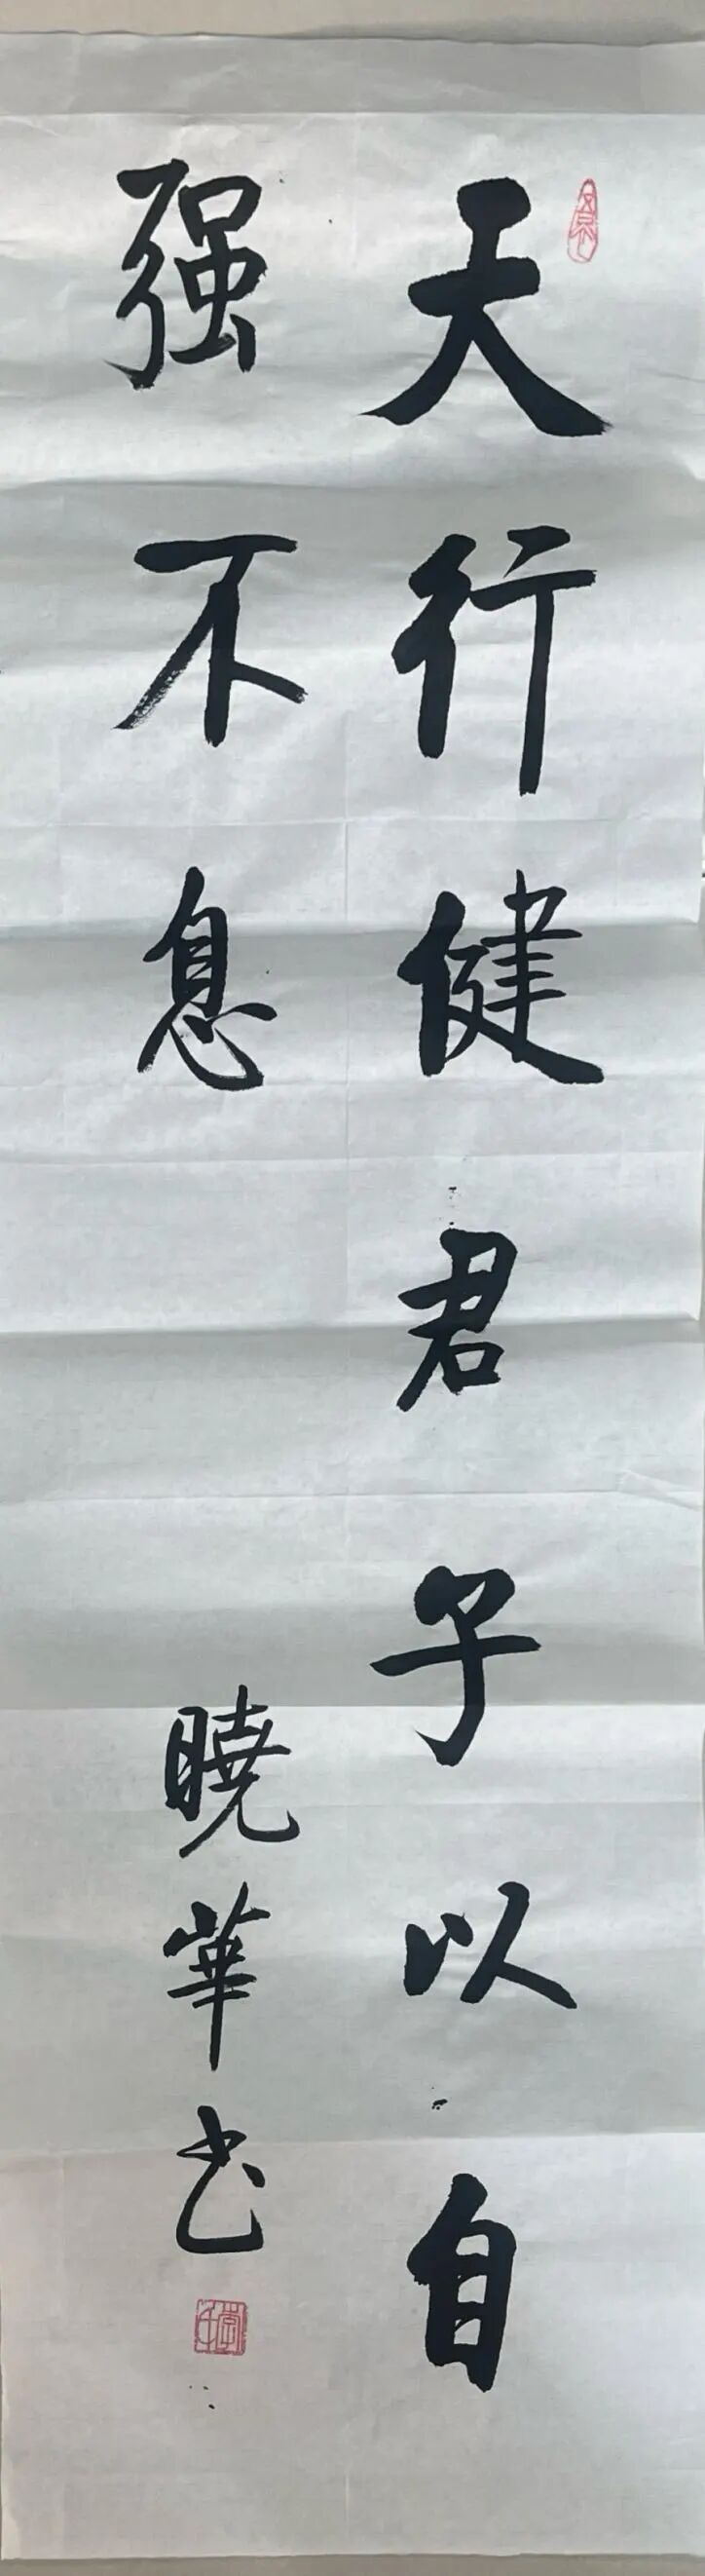 天行健君子以自
强不息
曉華书